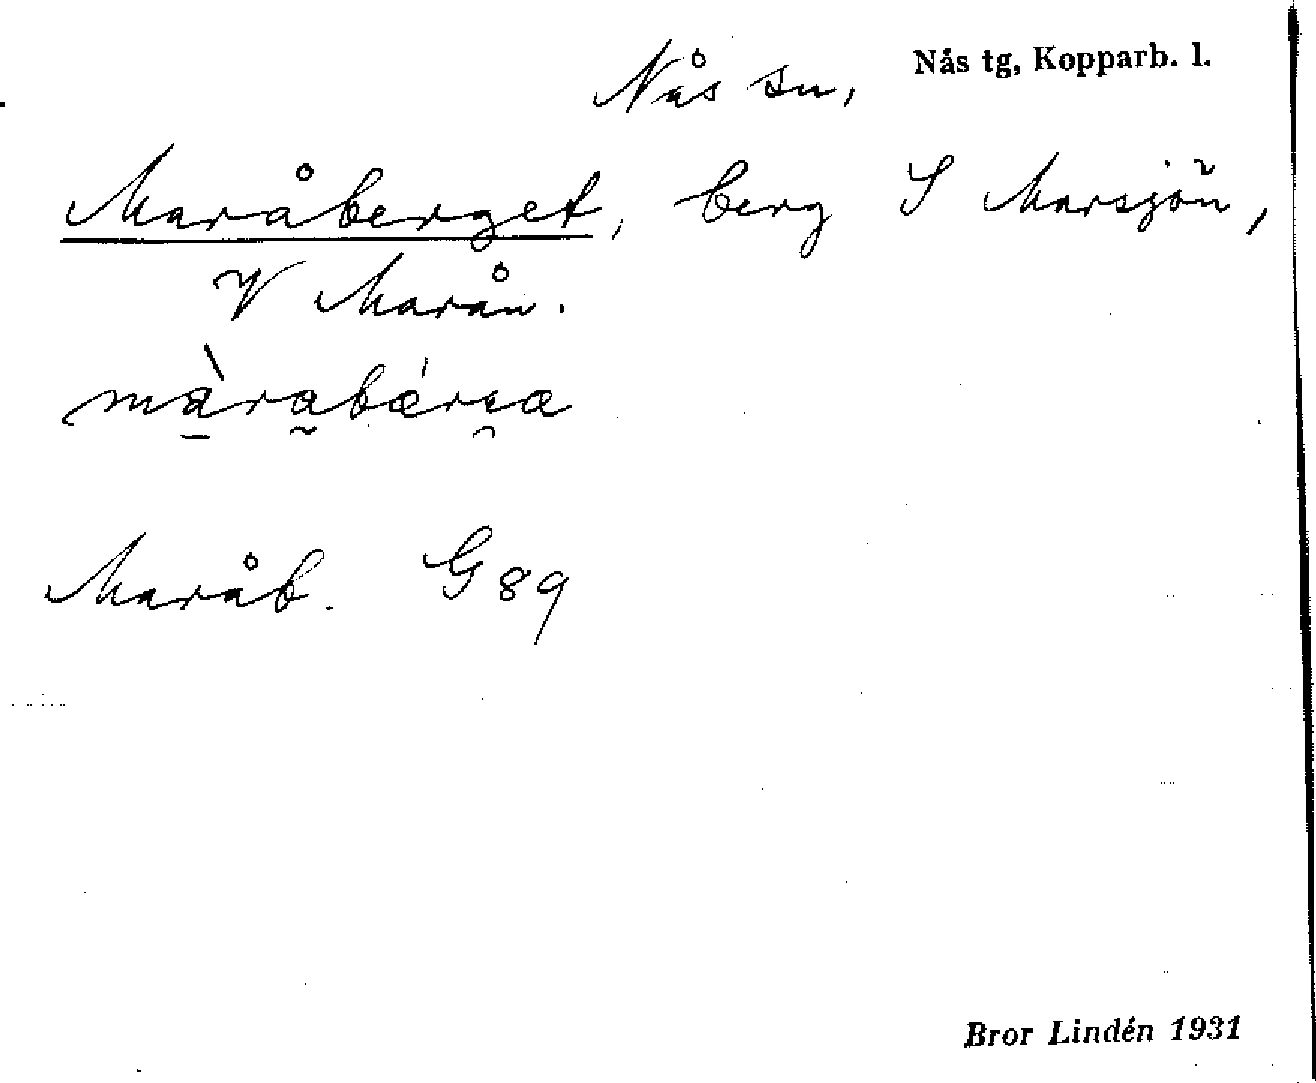 Nås sn, Nås tg, Kopparb. l.
Maråberget, berg S Marsjön,
V Marån.
Maråb. G 89
Bror Lindén 1931